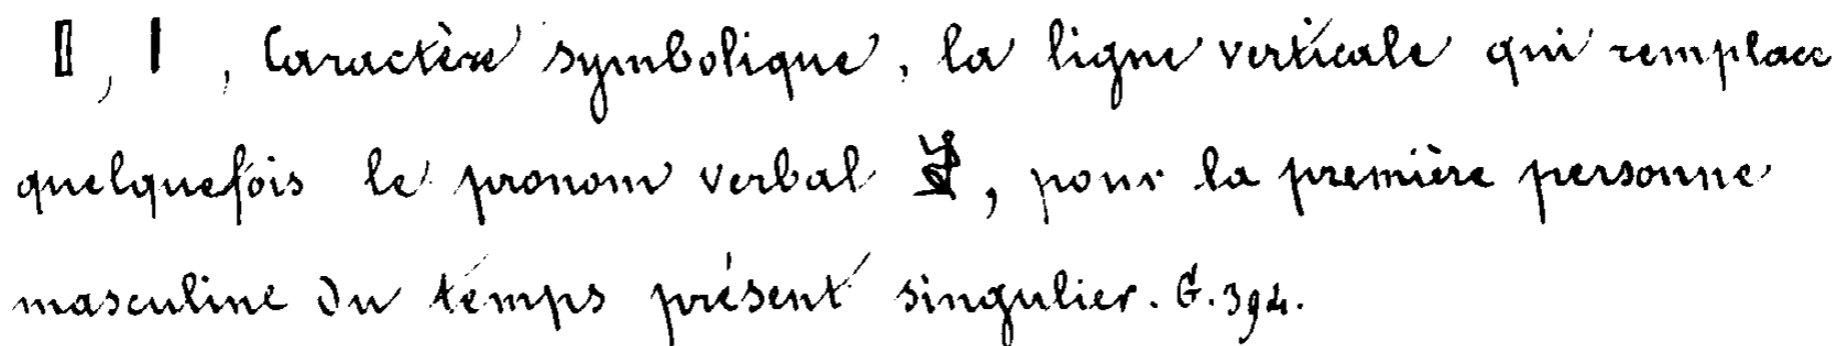 𓏤, 𓏤, Caractère symbolique, la ligne verticale qui remplace
quelquefois le pronom verbal 𓀀, pour la première personne
masculine du temps présent singulier. G. 394.